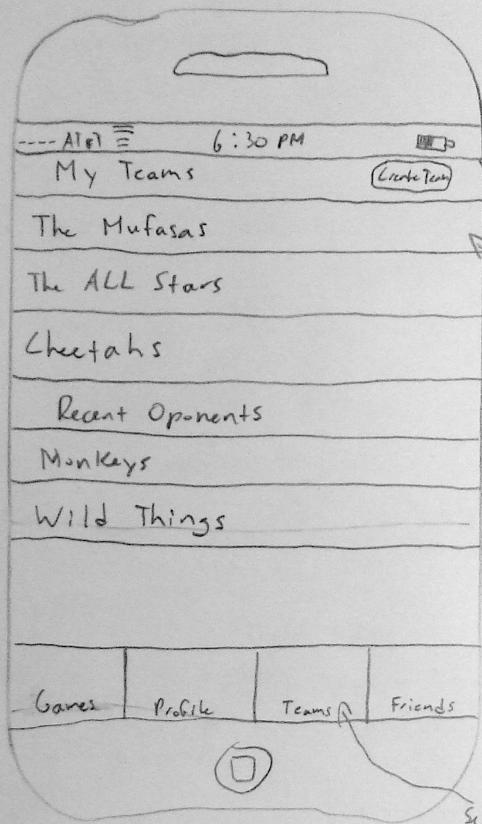 ---- AT&T 6:30 PM
My Teams Create Team
The Mufasas
The ALL Stars
Cheetahs
Recent Oponents
Monkeys
Wild Things
Games Profile Teams Friends